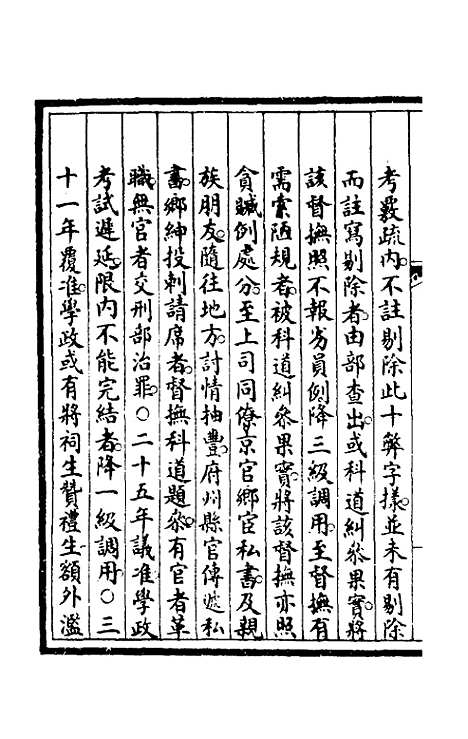 考覈疏内不註剔除此十弊字樣並未有剔除
而註寫剔除者由部查出或科道糾叅果實將
該督撫照不報劣員例降三級調用至督撫有
需索陋規者被科道糾叅果實將該督撫亦照
貪贓例處分至上司同僚京官鄉宦私書及親
族朋友隨往地方討情抽豐府州縣官傳遞私
書鄉紳投刺請席者督撫科道題叅有官者革
職無官者交刑部治罪〇二十五年議准學政
考試遲延限内不能完結者降一級調用〇三
十一年覆准學政或有將祠生贊禮生額外濫